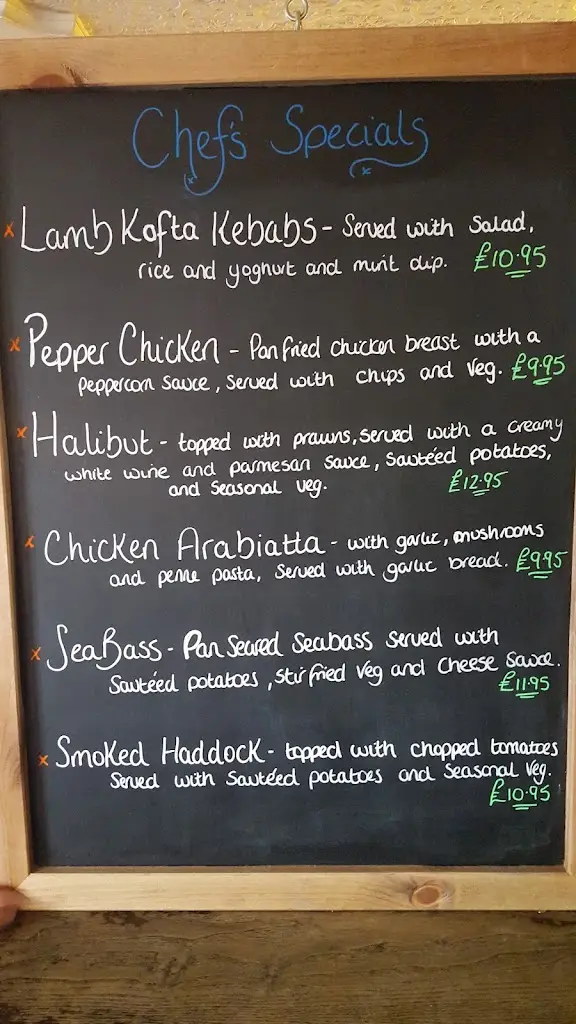 Chef's Specials
x Lamb Kofta Kebabs - Served with Salad,
rice and yoghurt and mint dip. £10.95
x Pepper Chicken - Pan fried chicken breast with a
peppercorn Sauce, Served with chips and Veg. £9.95
x Halibut - topped with prawns, served with a creamy
white wine and parmesan sauce, Sauteéd potatoes,
and Seasonal veg. £12.95
x Chicken Arabiatta - with garlic, mushrooms
and penne pasta, Served with garlic bread. £9.95
x SeaBass - Pan Seared Seabass served with
Sauteéd potatoes, stir fried Veg and Cheese Sauce.
£11.95
x Smoked Haddock - topped with chopped tomatoes
Served with Sauteéd potatoes and Seasonal Veg.
£10.95